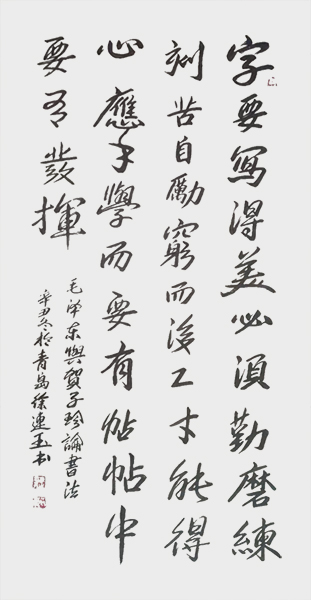 字要寫得美必須勤磨練
刻苦自勵窮而後工才能得
心應手學而要有帖帖中
要有發揮
毛澤东與賀子珍論書法
辛丑冬於青島徐連玉书